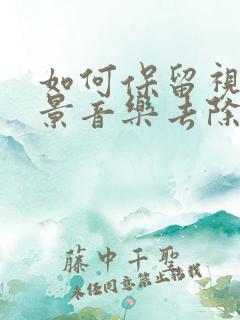 如何保留視
景音樂去除
藤中千聖
未经同意禁止转载